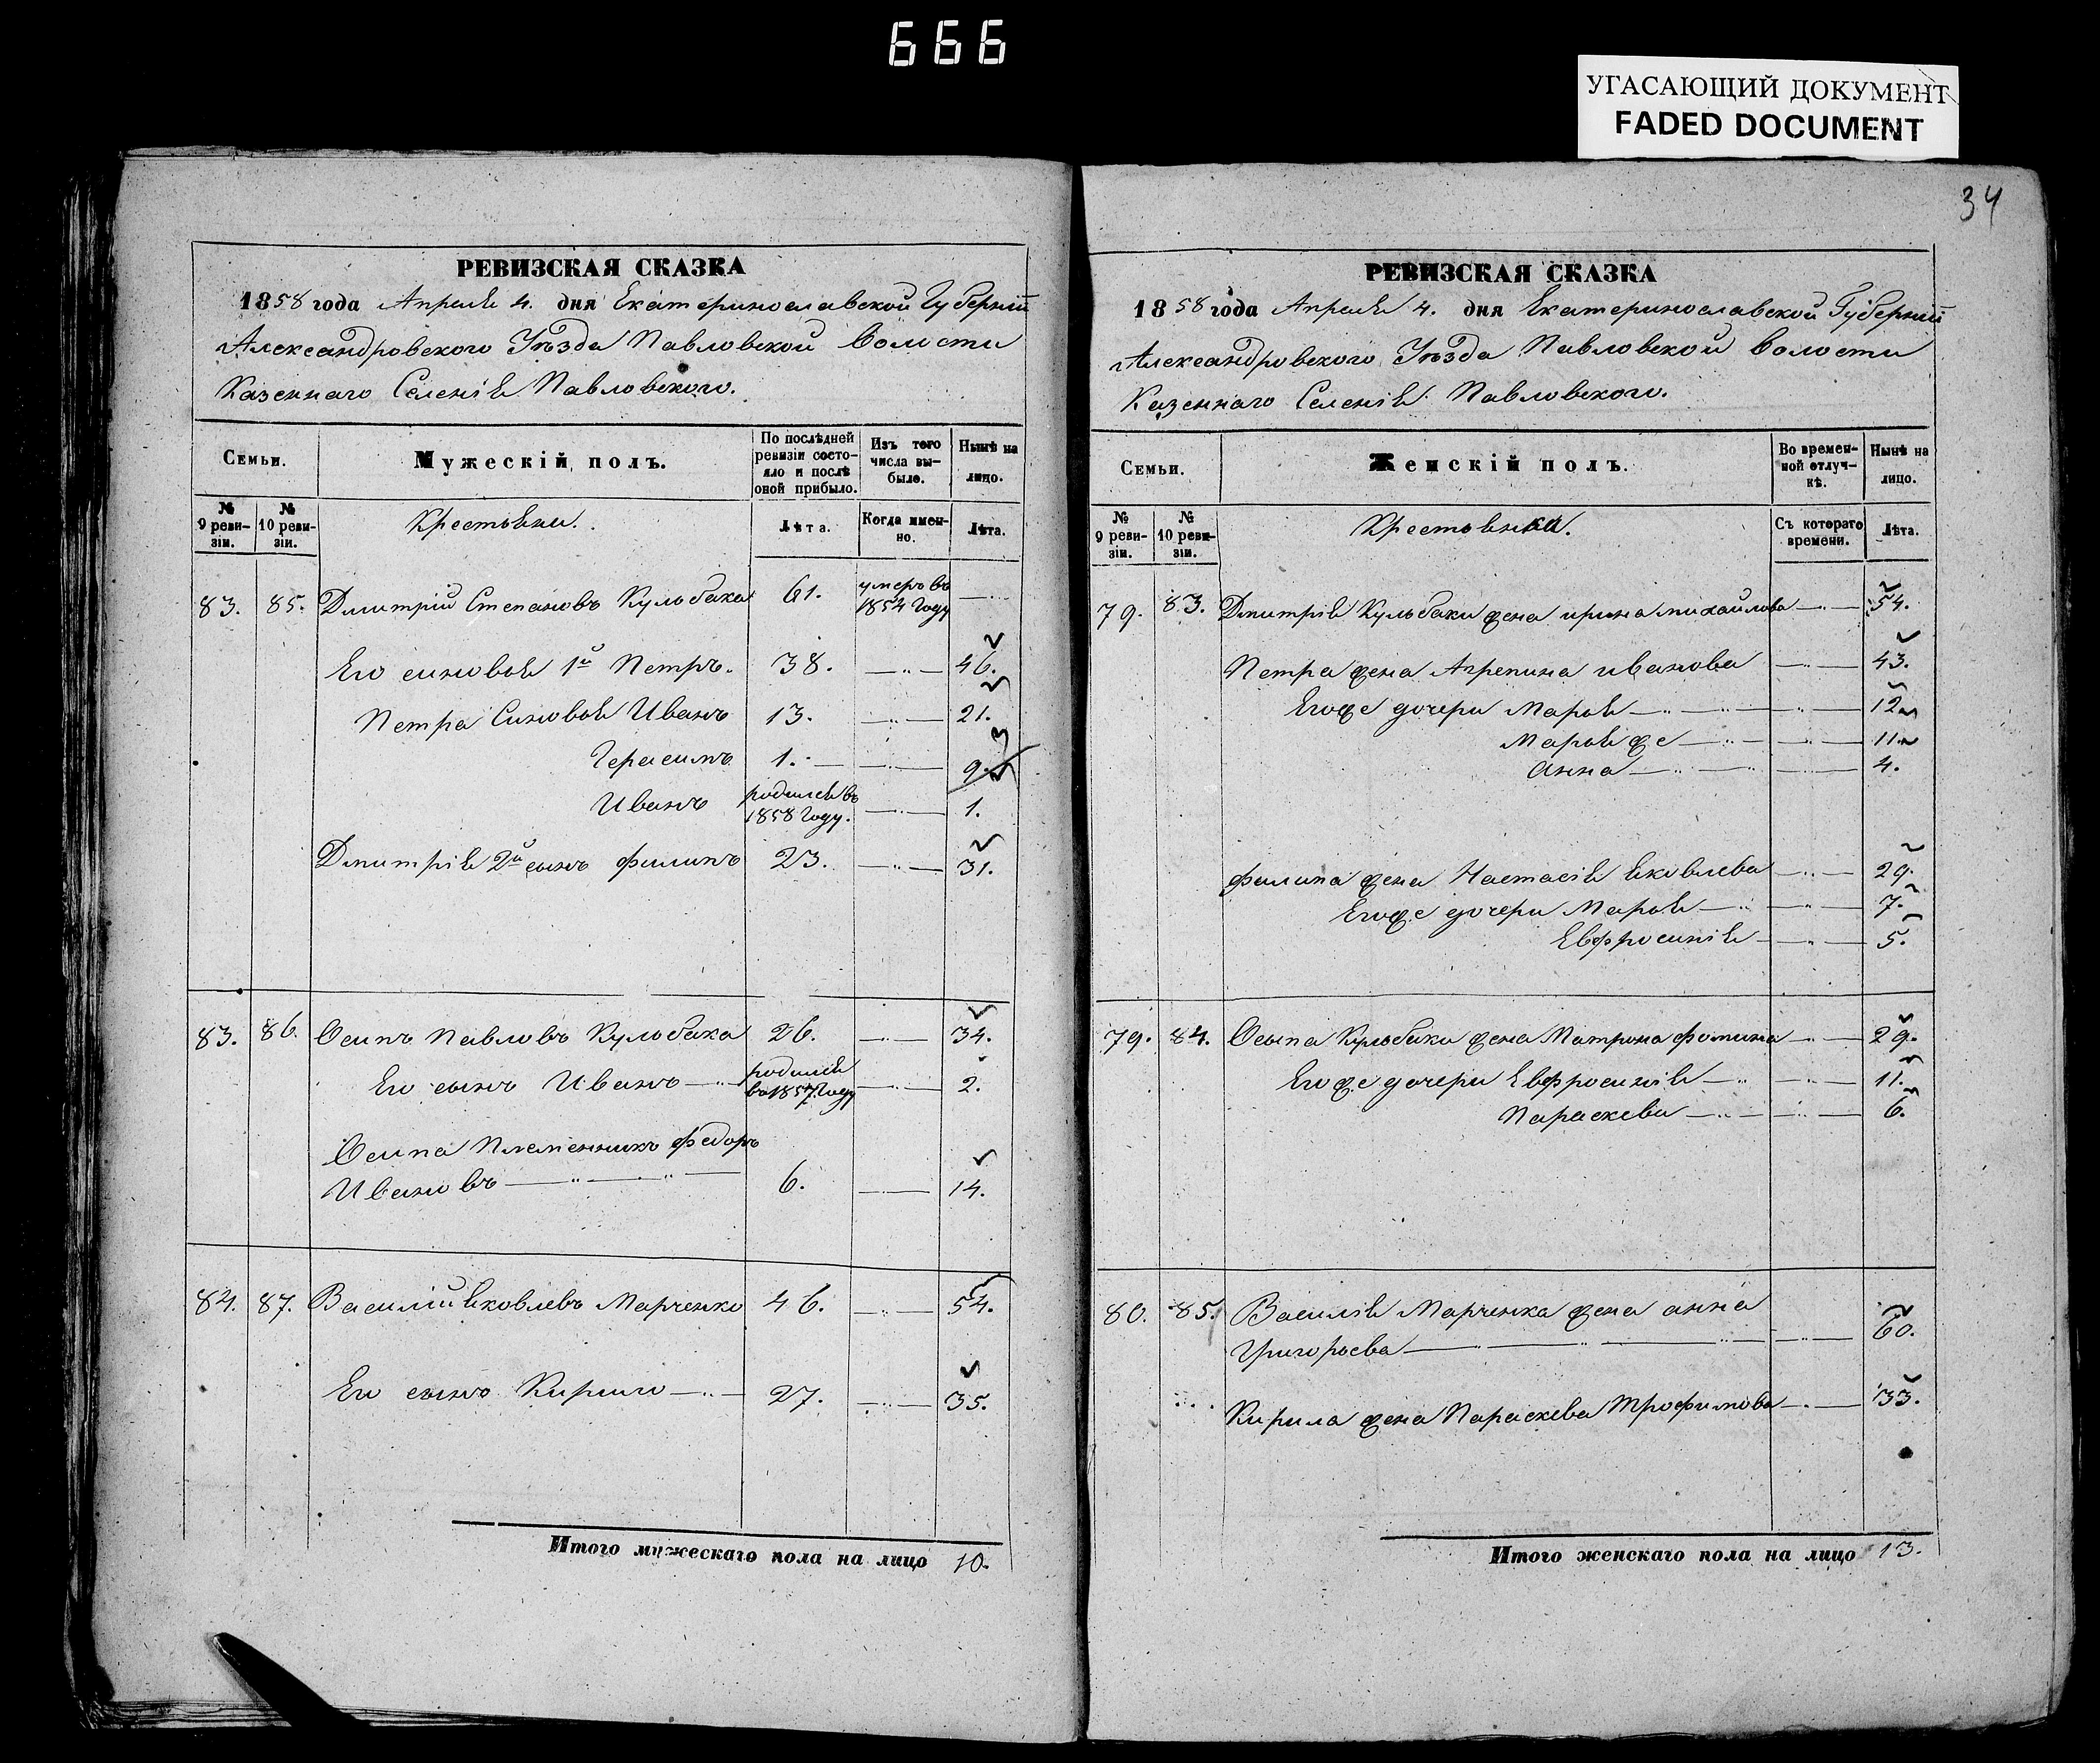 666
УГАСАЮЩИЙ ДОКУМЕНТ
FADED DOCUMENT
РЕВИЗСКАЯ СКАЗКА
1858 года Апреля 4. дня Екатеринославской Губерніи
Александровского Уѣзда Павловской Волости
Казеннаго Селенія Павловского.
Семьи.
Мужескій полъ.
По послѣдней ревизіи состояло и послѣ оной прибыло.
Изъ того числа выбыло.
Нынѣ на лицо.
№ 9 ревизіи.
№ 10 ревизіи.
Крестьяни.
Лѣта.
Когда именно.
Лѣта.
83. 85. Дмитрій Степановъ Кульбака 61. умеръ въ 1854 Году —
Его синовья 1й Петръ. 38. —„— 46.
Петра Синовья Иванъ 13. —„— 21.
Герасимъ 1. —„— 9.
Иванъ родился въ 1858 Году. —„— 1.
Дмитрія 2й сынъ Филипъ 23. —„— 31.
83. 86. Осипъ Павловъ Кульбака 26. —„— 34.
Его сынъ Иванъ —„— родился въ 1857 Году —„— 2.
Осипа Племенникъ Федоръ
Ивановъ —„—„— 6. —„— 14.
84. 87. Василій Яковлевъ Марченко 46. —„— 54.
Его сынъ Кирило —„— 27. —„— 35.
Итого мужескаго пола на лицо 10.
34
РЕВИЗСКАЯ СКАЗКА
1858 года Апреля 4. дня Екатеринославской Губерніи
Александровского Уѣзда Павловской Волости
Казеннаго Селенія Павловского.
Семьи.
Женскій полъ.
Во временной отлучкѣ.
Нынѣ на лицо.
№ 9 ревизіи.
№ 10 ревизіи.
Крестьянки.
Съ котораго времени.
Лѣта.
79. 83. Дмитрія Кульбаки жена ирина михайлова —„— 54.
Петра жена Агрепина иванова —„— 43.
Егоже дочери Марья —„—„— 12.
Марья же —„—„— 11.
Анна —„—„— 4.
Филипа жена Настасія Яковлева —„— 29.
Егоже дочери Марья —„—„— 7.
Евфросинія —„— 5.
79. 84. Осипа Кульбаки жена Матрона Фомина —„— 29.
Егоже дочери Евфросинія —„—„— 11.
Параскева —„—„— 6.
80. 85. Василія Марченка жена анна
Григорьева —„—„— 60.
Кирила жена Параскева Трофимова —„— 33.
Итого женскаго пола на лицо 13.